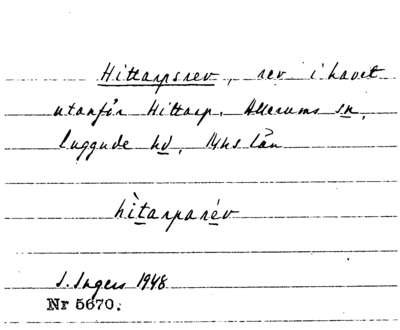 Hittarpsrev, rev i havet
utanför Hittarp. Allerums sn,
luggude hd, Mhs län
hìtarparév
I. Ingers 1948
Nr 5670.